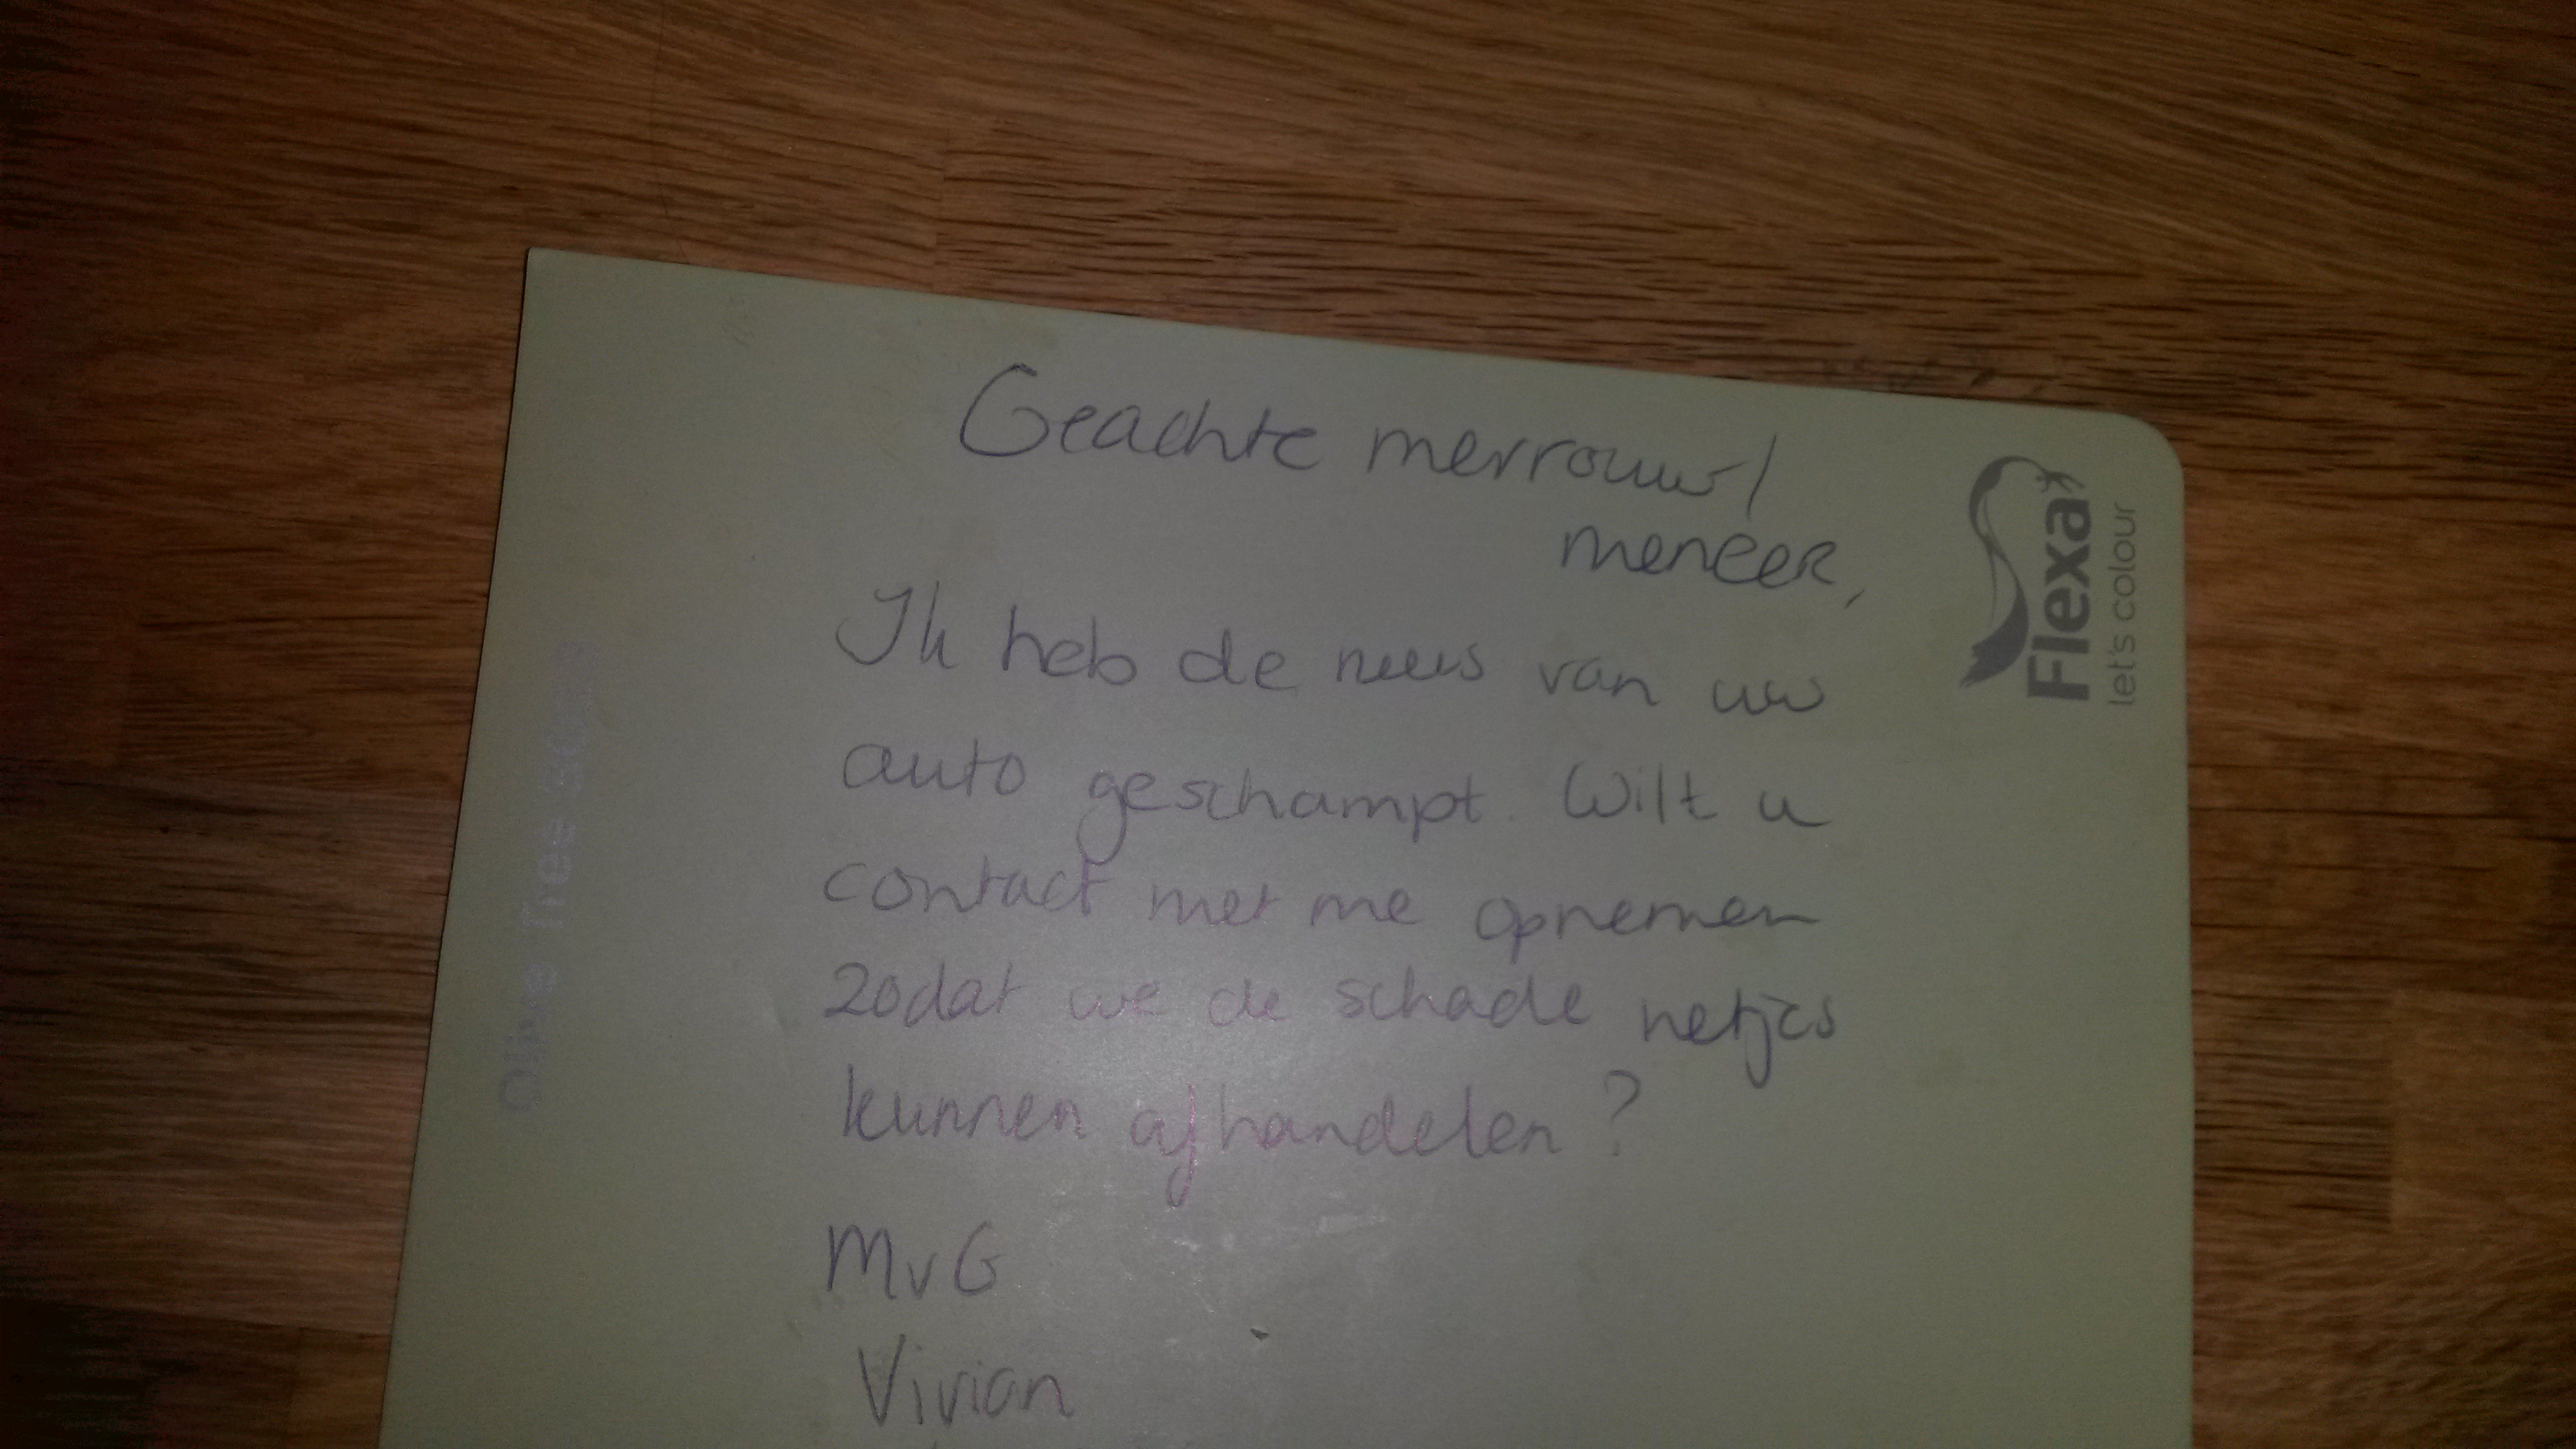 Geachte mevrouw/
meneer,
Ik heb de neus van uw
auto geschampt. Wilt u
contact met me opnemen
zodat we de schade netjes
kunnen afhandelen?
MvG
Vivian
Flexa
let's colour
Olive Tree